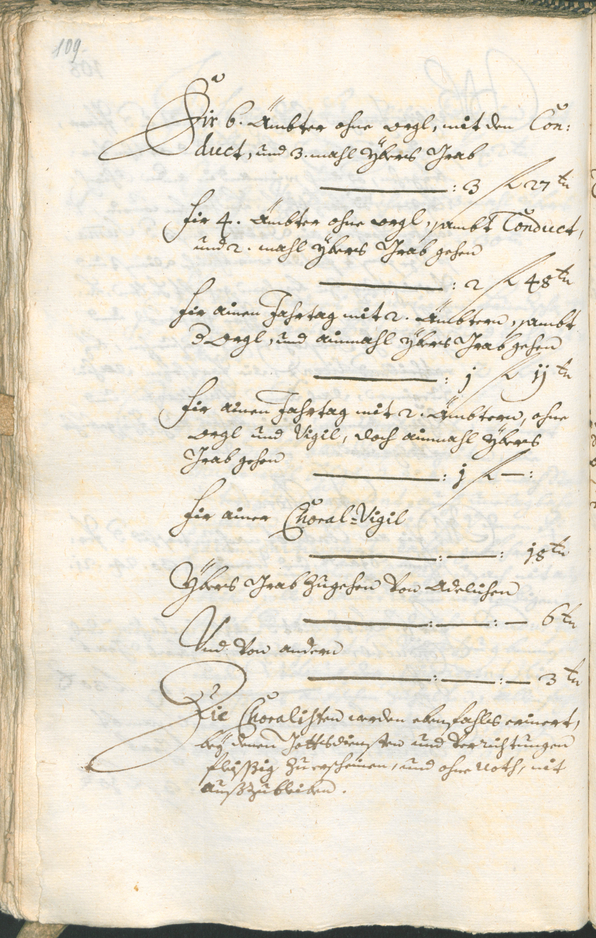 109.
Fir 6. Ämbter ohne Orgl, mit den Con:
duct, und 3. mahl ybers Grab
: 3 f 27 kr
Fir 4. Ämbter ohne Orgl, sambt Conduct,
und 2. mahl ybers Grab gehen
: 2 f 48 kr
Fir ainen Jahrtag mit 2. Ämbtern, sambt
d Orgl, und ainmahl ybers Grab gehen
: 1 f 11 kr
Fir ainen Jahrtag mit 2. Ämbtern, ohne
Orgl und Vigil, doch ainmahl ybers
Grab gehen
: 1 f — :
Fir ainer Choral-Vigil
: — : 18 kr
Ybers Grab zugehen von Adelichen
: — : — 6 kr
Und von andern
: — : — 3 kr
Die Choralisten werden ebenfahls erinert,
bey denen Gottsdiensten und Verrichtungen
fleissig zu erscheinen, und ohne Noth, nit
auszubleiben.